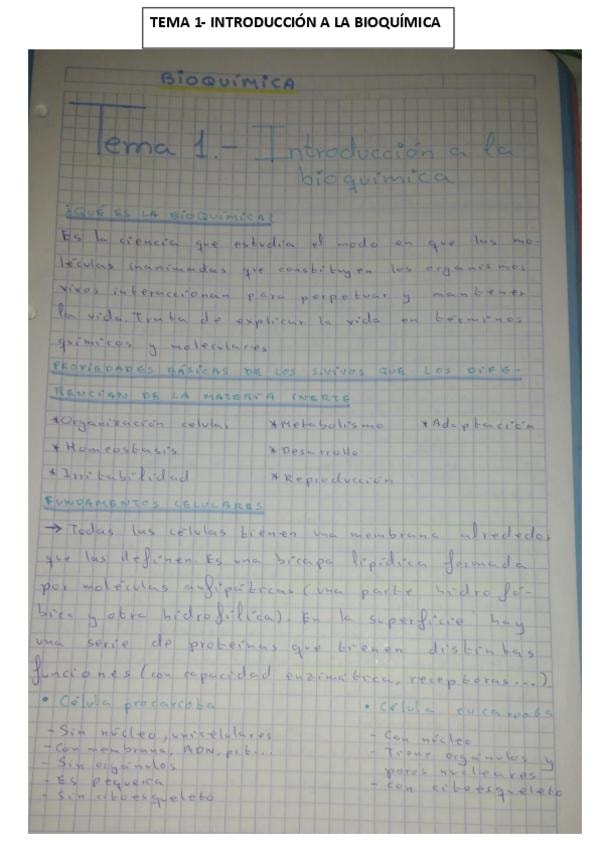 TEMA 1- INTRODUCCIÓN A LA BIOQUÍMICA
BIOQUÍMICA
Tema 1.- Introducción a la
bioquímica
¿QUÉ ES LA BIOQUÍMICA?
Es la ciencia que estudia el modo en que las mo-
léculas inanimadas que constituyen los organismos
vivos interaccionan para perpetuar y mantener
la vida. Trata de explicar la vida en términos
químicos y moleculares
PROPIEDADES BÁSICAS DE LOS S.VIVOS QUE LOS DIFE-
RENCIAN DE LA MATERIA INERTE
*Organización celular *Metabolismo *Adaptación
*Homeostasis *Desarrollo
*Irritabilidad *Reproducción
FUNDAMENTOS CELULARES
→ Todas las células tienen una membrana alrededor
que las definen. Es una bicapa lipídica formada
por moléculas anfipáticas (una parte hidrofó-
bica y otra hidrofílica). En la superficie hay
una serie de proteínas que tienen distintas
funciones (con capacidad enzimática, receptoras...).
• Célula procariota
- Sin núcleo, unicelulares
- Con membrana, ADN, rib...
- Sin orgánulos
- Es pequeña
- Sin citoesqueleto
• Célula eucariota
- Con núcleo
- Tiene orgánulos y
poros nucleares
- Con citoesqueleto